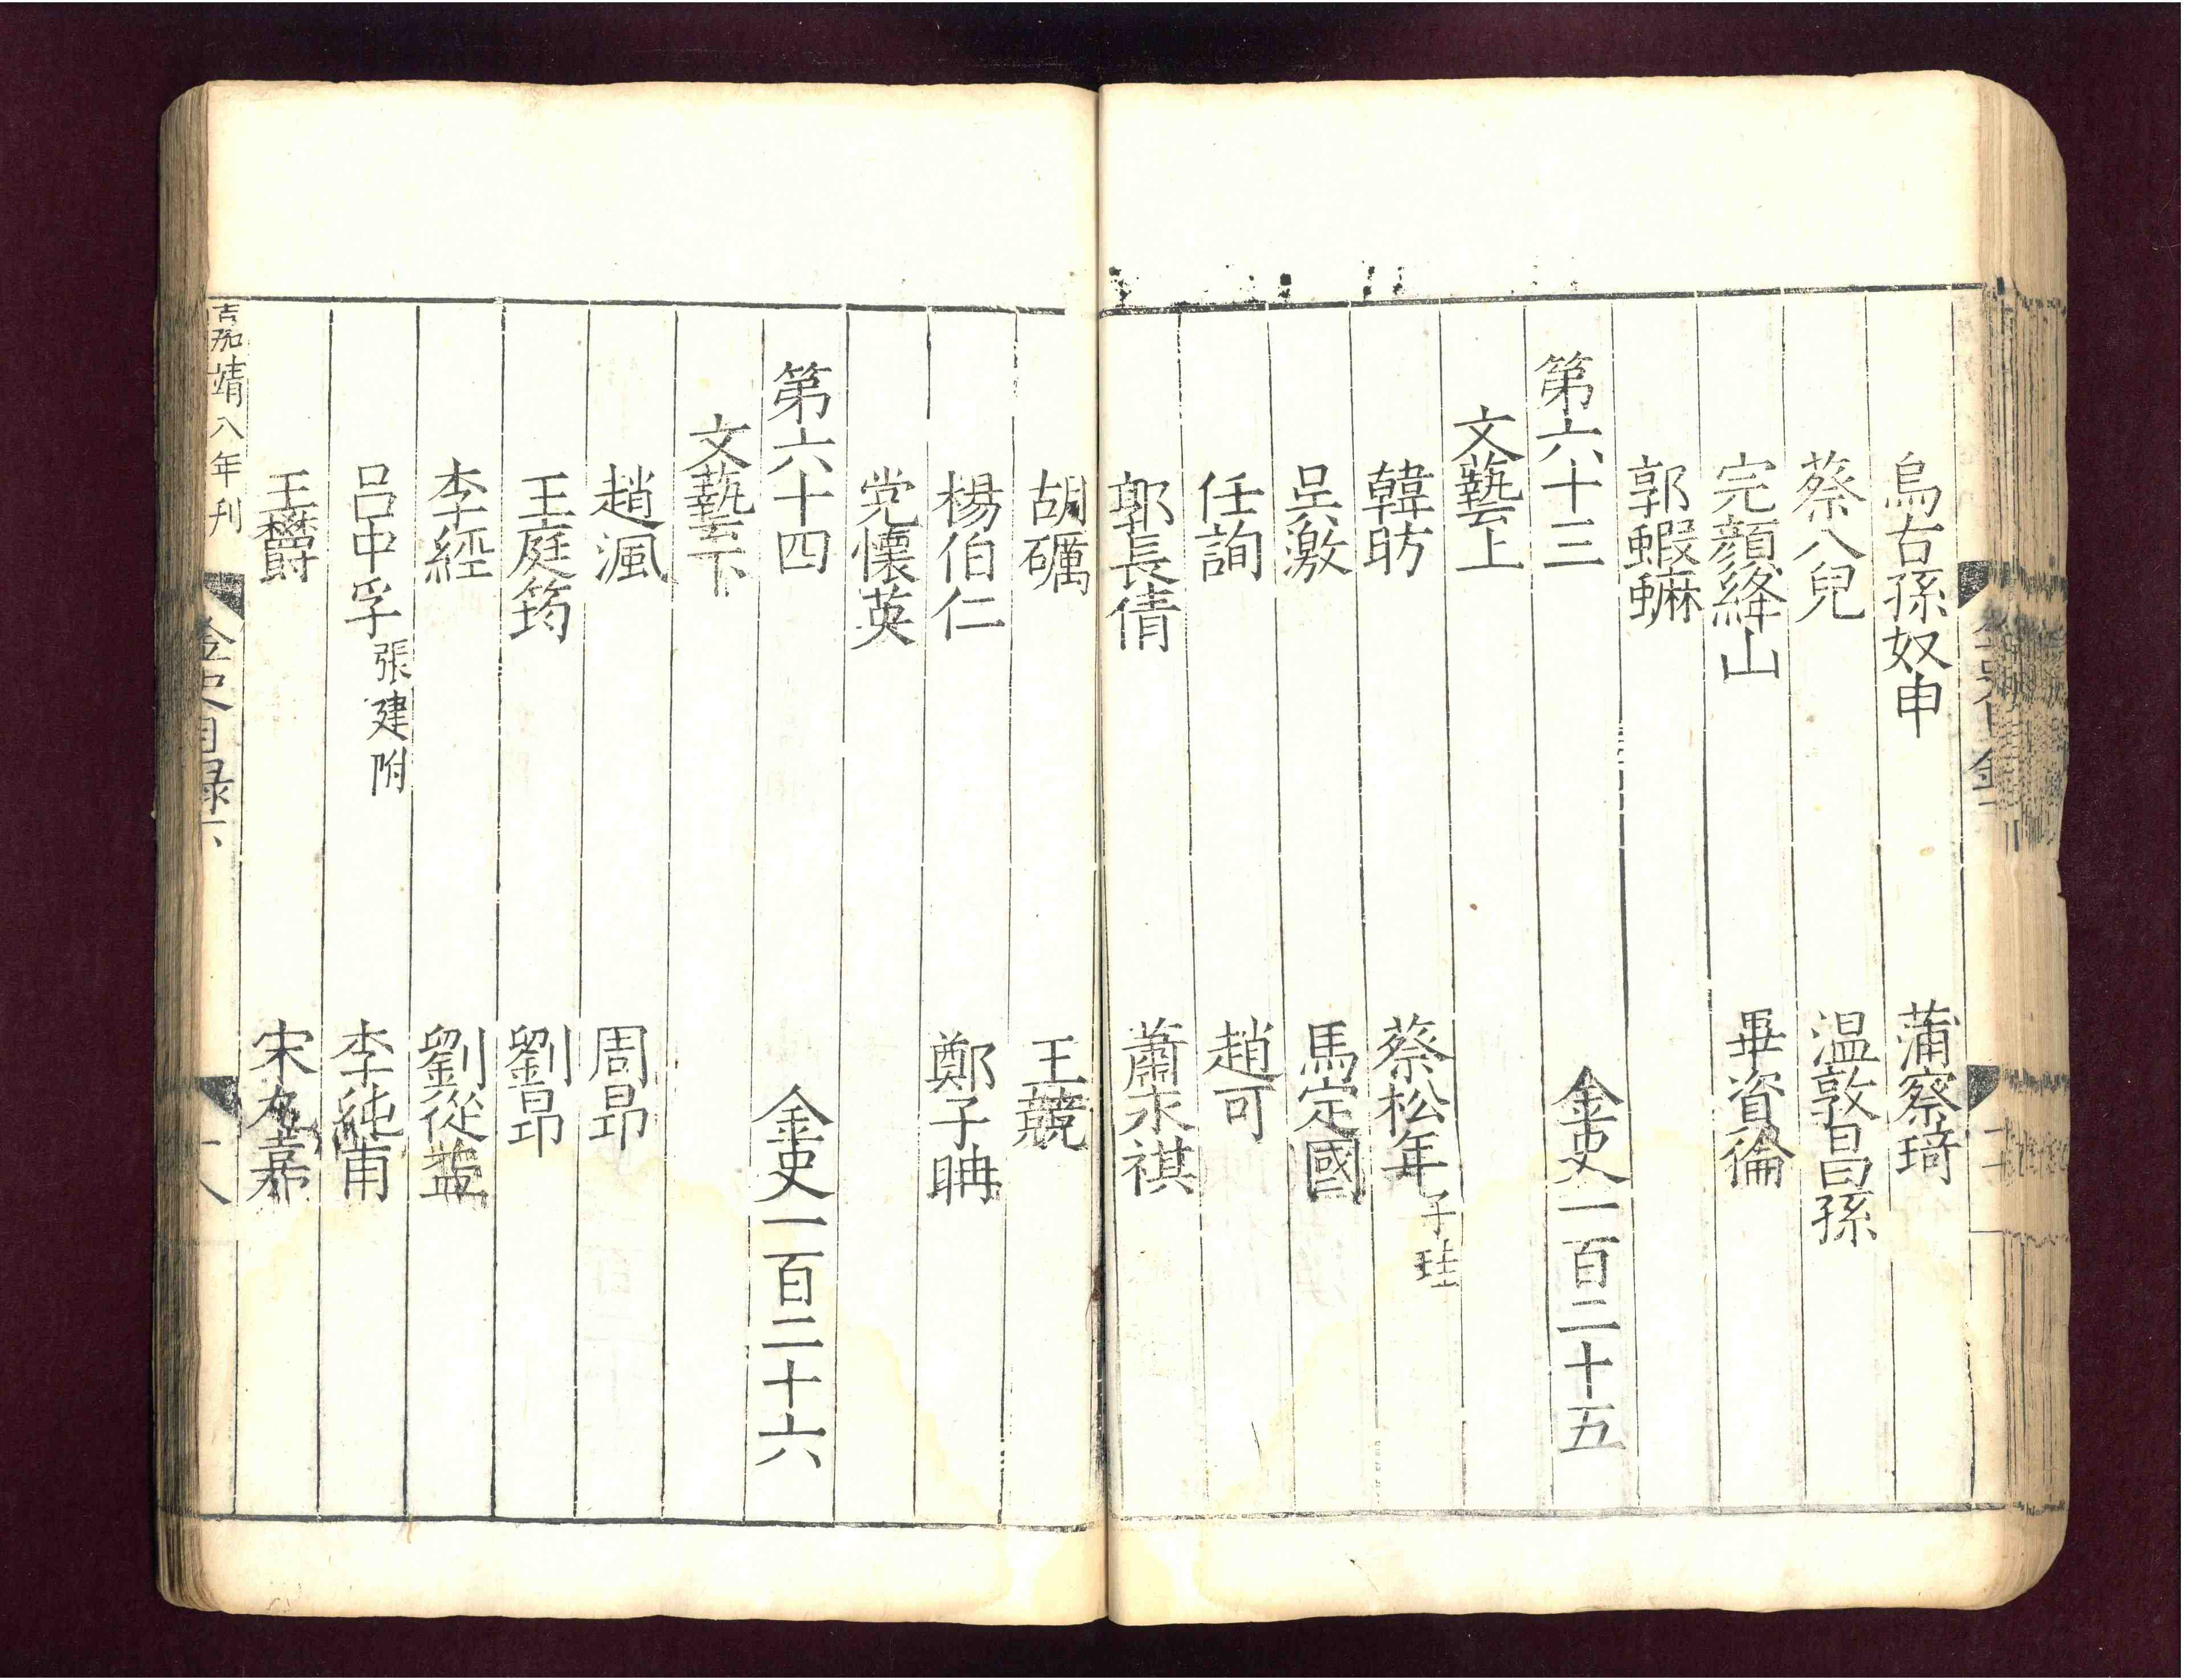 烏古孫奴申 蒲察琦
蔡八兒 溫敦昌孫
完顏絳山 畢資倫
郭蝦䗫
第六十三 金史一百二十五
文藝上
韓昉 蔡松年子珪
吳激 馬定國
任詢 趙可
郭長倩 蕭永祺
胡礪 王競
楊伯仁 鄭子聃
党懷英
第六十四 金史一百二十六
文藝下
趙渢 周昂
王庭筠 劉昂
李經 劉從益
呂中孚張建附 李純甫
王欝 宋九嘉
嘉靖八年刊 金史目録下 十八